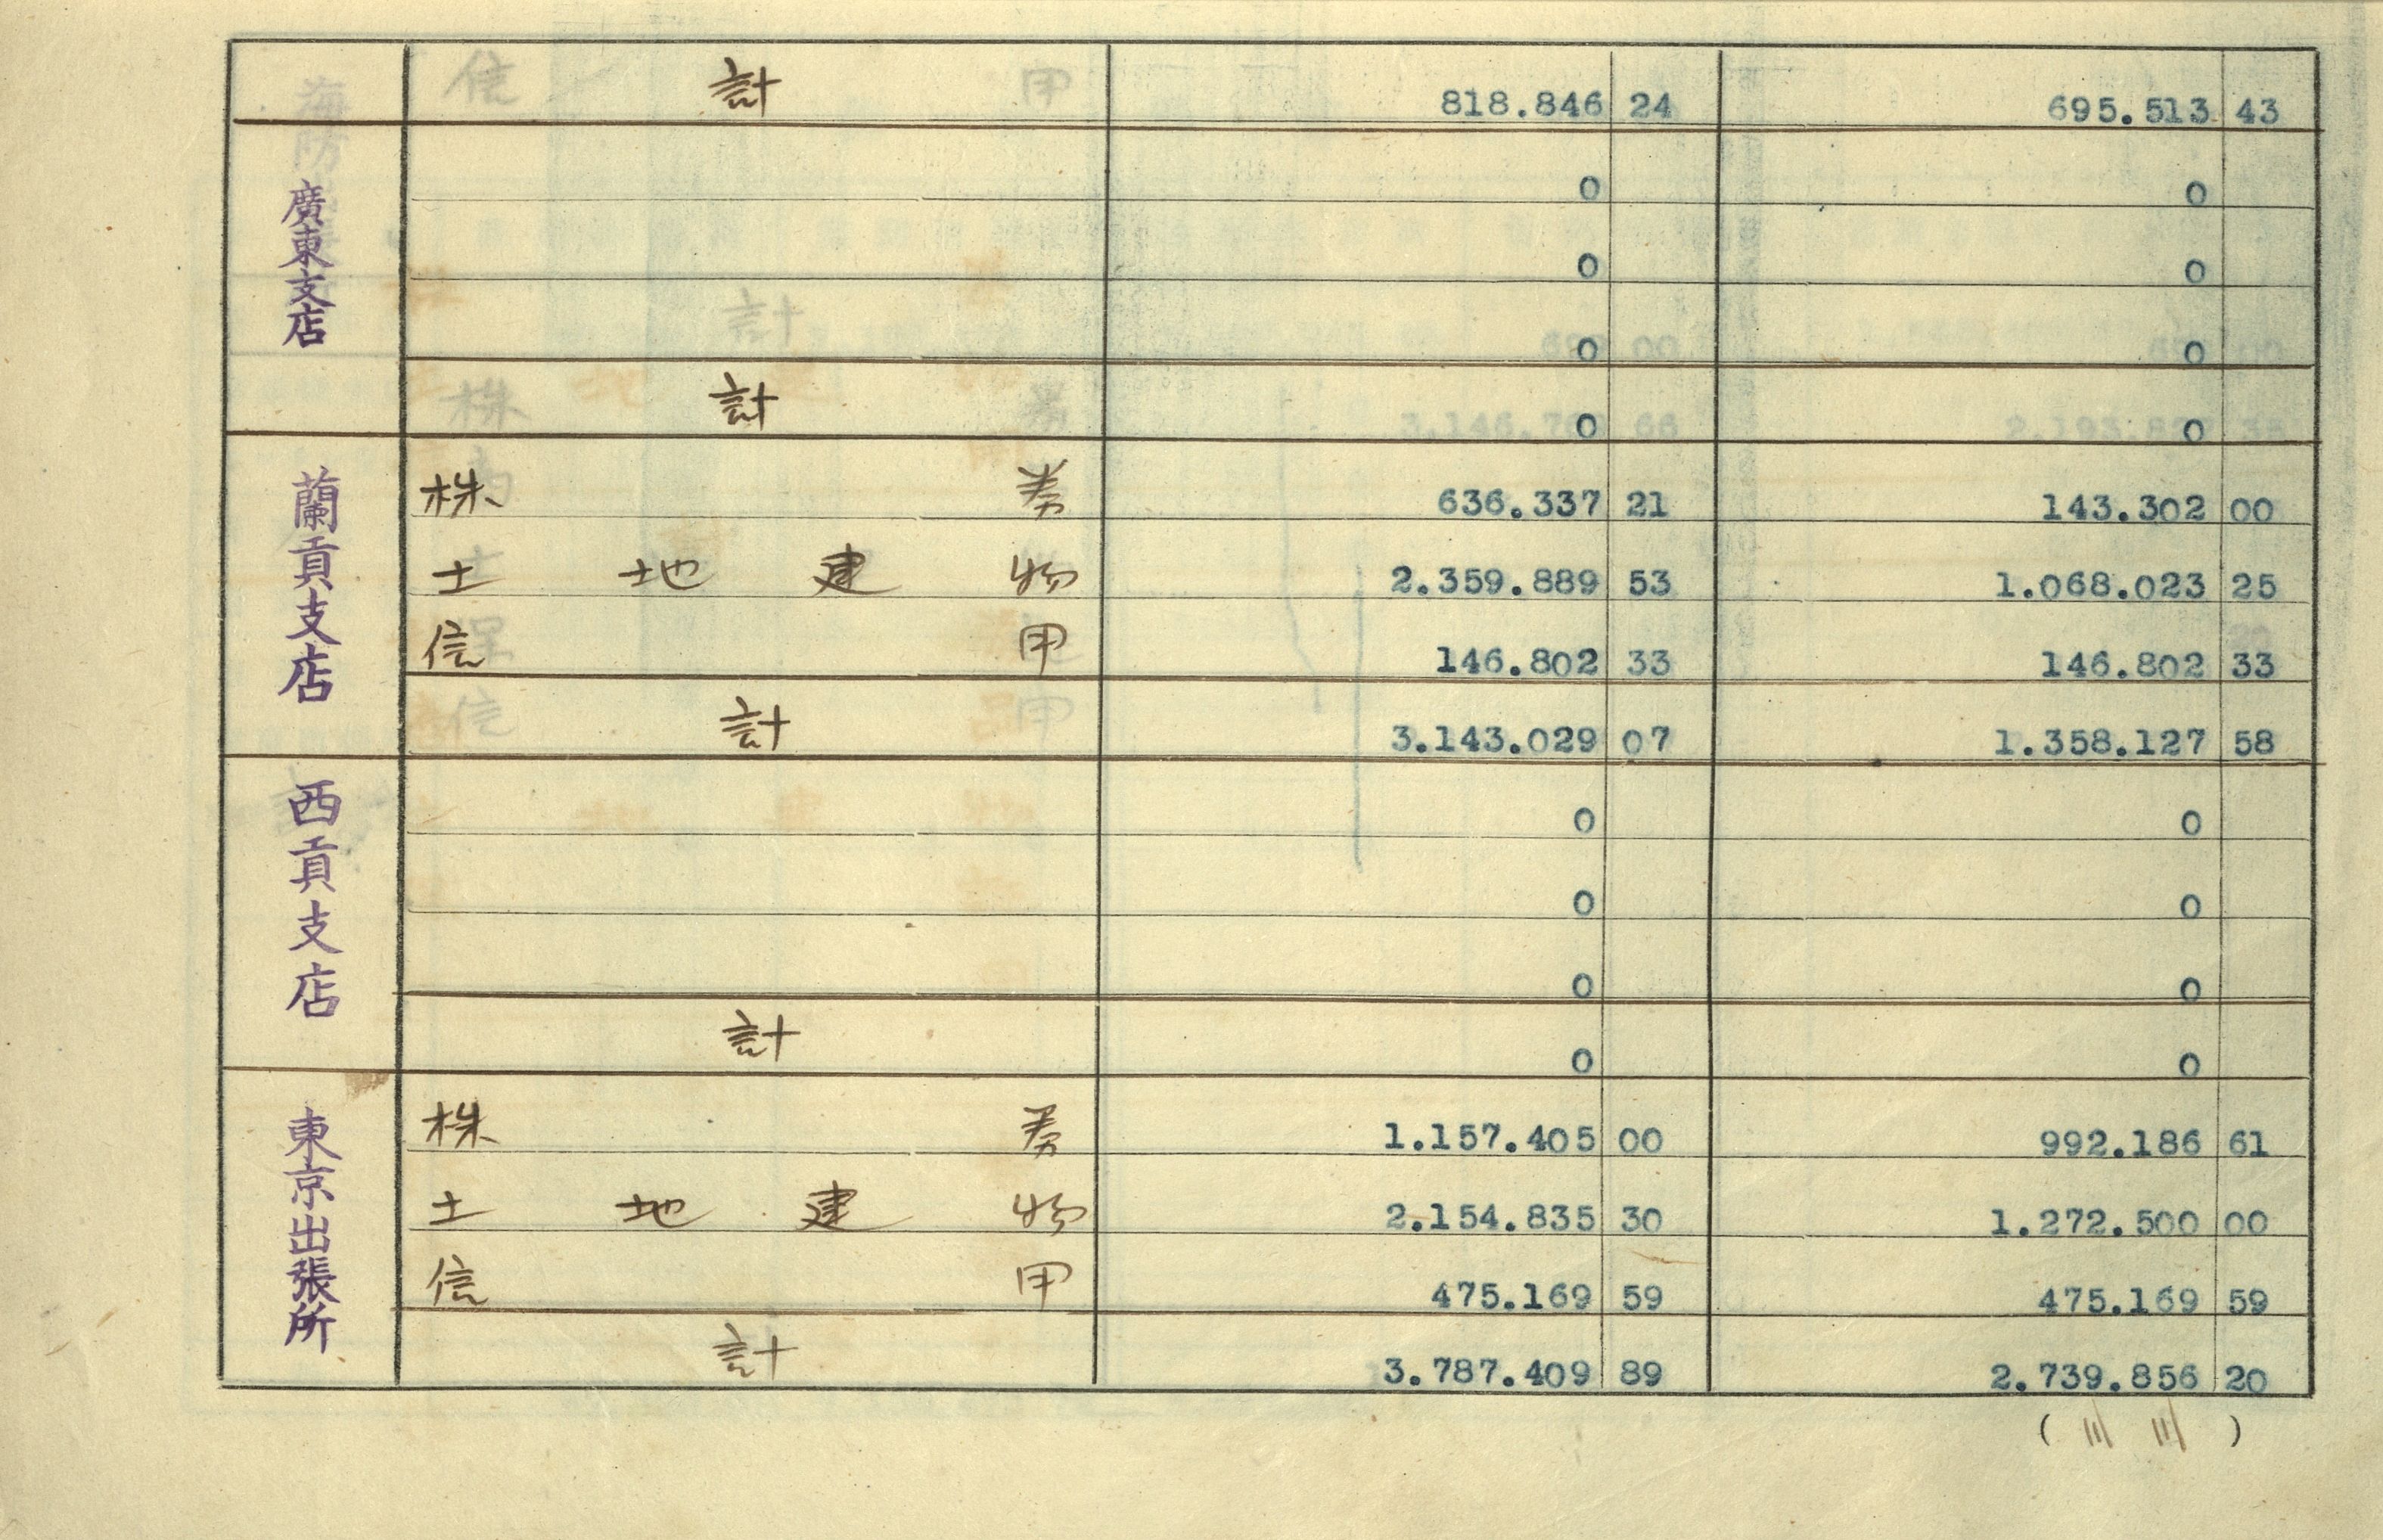 計 818.846 24 695.513 43
廣東支店
0 0
0 0
0 0
計 0 0
蘭貢支店
株券 636.337 21 143.302 00
土地建物 2.359.889 53 1.068.023 25
信用 146.802 33 146.802 33
計 3.143.029 07 1.358.127 58
西貢支店
0 0
0 0
0 0
計 0 0
東京出張所
株券 1.157.405 00 992.186 61
土地建物 2.154.835 30 1.272.500 00
信用 475.169 59 475.169 59
計 3.787.409 89 2.739.856 20